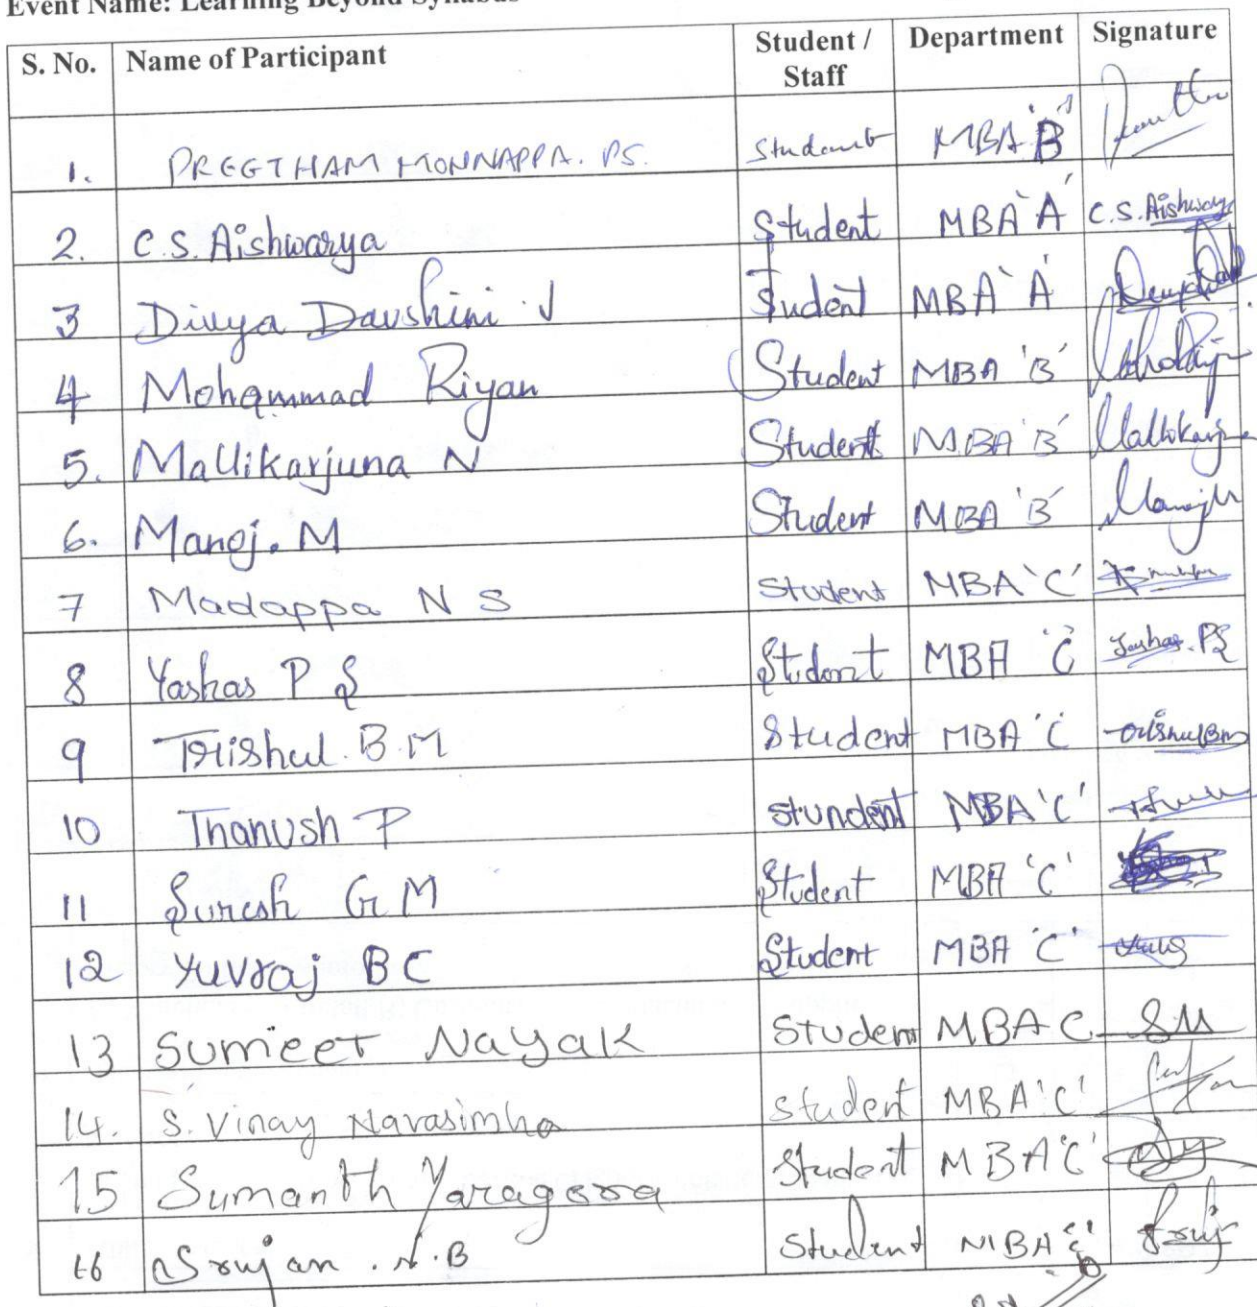 Event Name: Learning Beyond Syllabus
S. No. Name of Participant Student / Staff Department Signature
1. PREETHAM MONNAPPA. P.S. Student MBA 'B'
2. C.S. Aishwarya Student MBA 'A' C.S. Aishwarya
3 Divya Darshini J Student MBA 'A'
4 Mohammad Riyan Student MBA 'B'
5. Mallikarjuna N Student MBA 'B' Mallikarjuna
6. Manoj. M Student MBA 'B' Manoj M
7 Madappa N S Student MBA 'C'
8 Yashas P S Stident MBA 'C' Yashas. PS
9 Trishul. B.M Student MBA 'C' Trishul Bm
10 Thanush P Stundent MBA 'C'
11 Suresh G M Student MBA 'C'
12 Yuvraj B C Student MBA 'C'
13 Sumeet Nayak Student MBA C SM
14. S. Vinay Narasimha Student MBA 'C'
15 Sumanth Student MBA 'C'
16 Srujan . N.B Student MBA Sruj